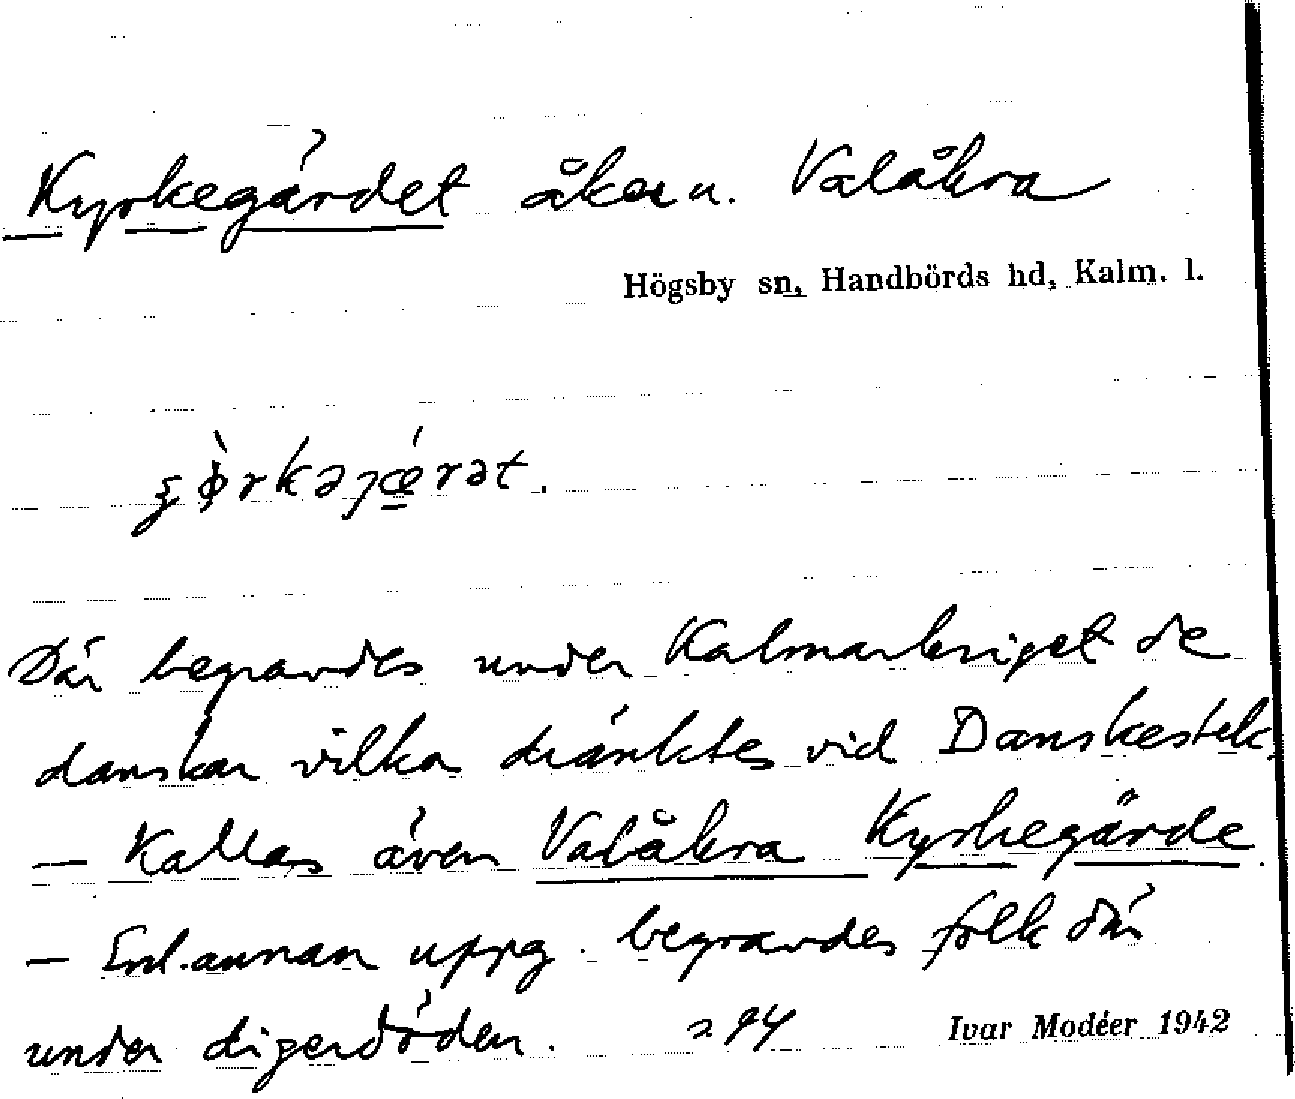 Kyrkegärdet åker u. Valåkra
Högsby sn, Handbörds hd, Kalm. l.
Där begravdes under Kalmarkriget de
danskar vilka dränktes vid Danskestek.
— Kallas även Valåkra Kyrkegärde.
— Enl. annan uppg. begravdes folk där
under digerdöden. 294 Ivar Modéer 1942